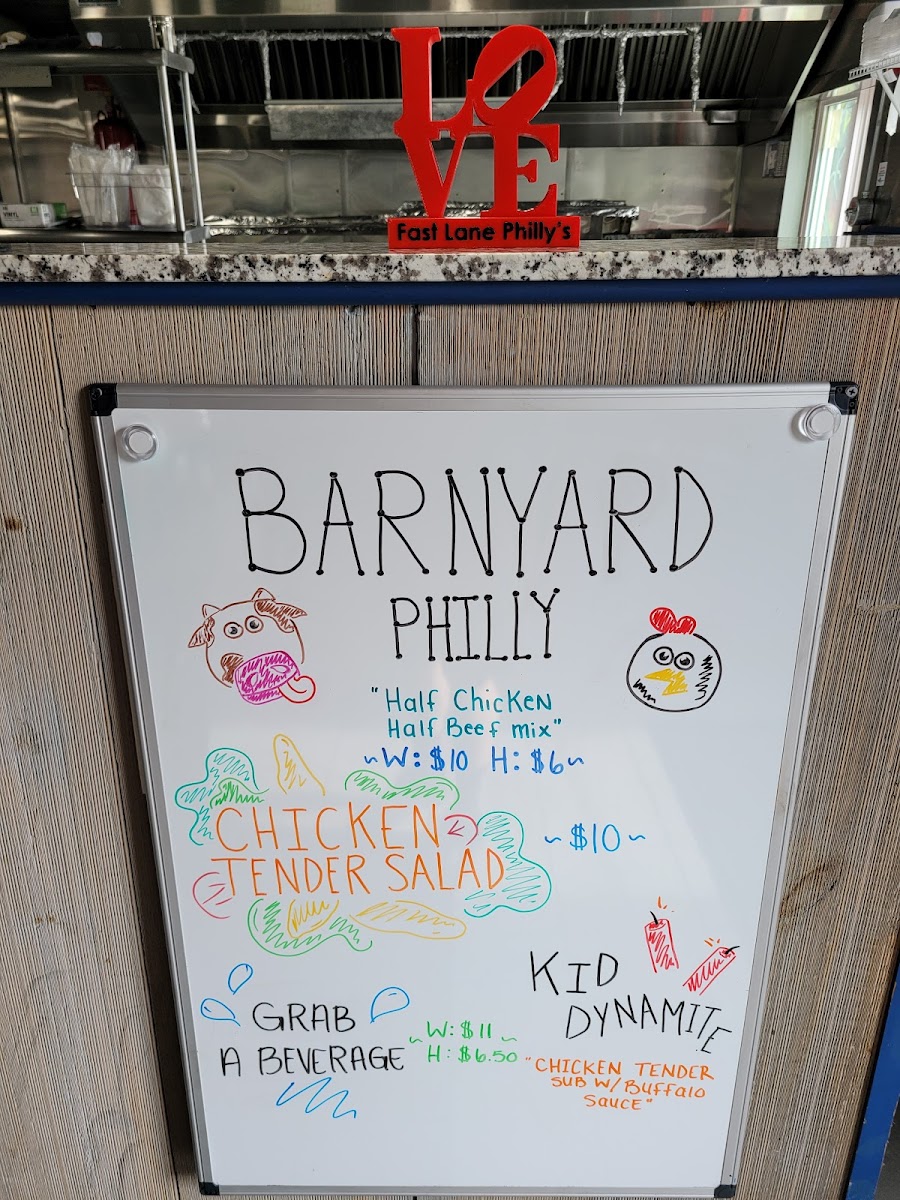 LOVE
Fast Lane Philly's
BARNYARD
PHILLY
"Half Chicken
Half Beef mix"
~W: $10 H: $6~
CHICKEN
TENDER SALAD
~$10~
KID
DYNAMITE
"CHICKEN TENDER
SUB W/ Buffalo
Sauce"
~W: $11~
H: $6.50
GRAB
A BEVERAGE